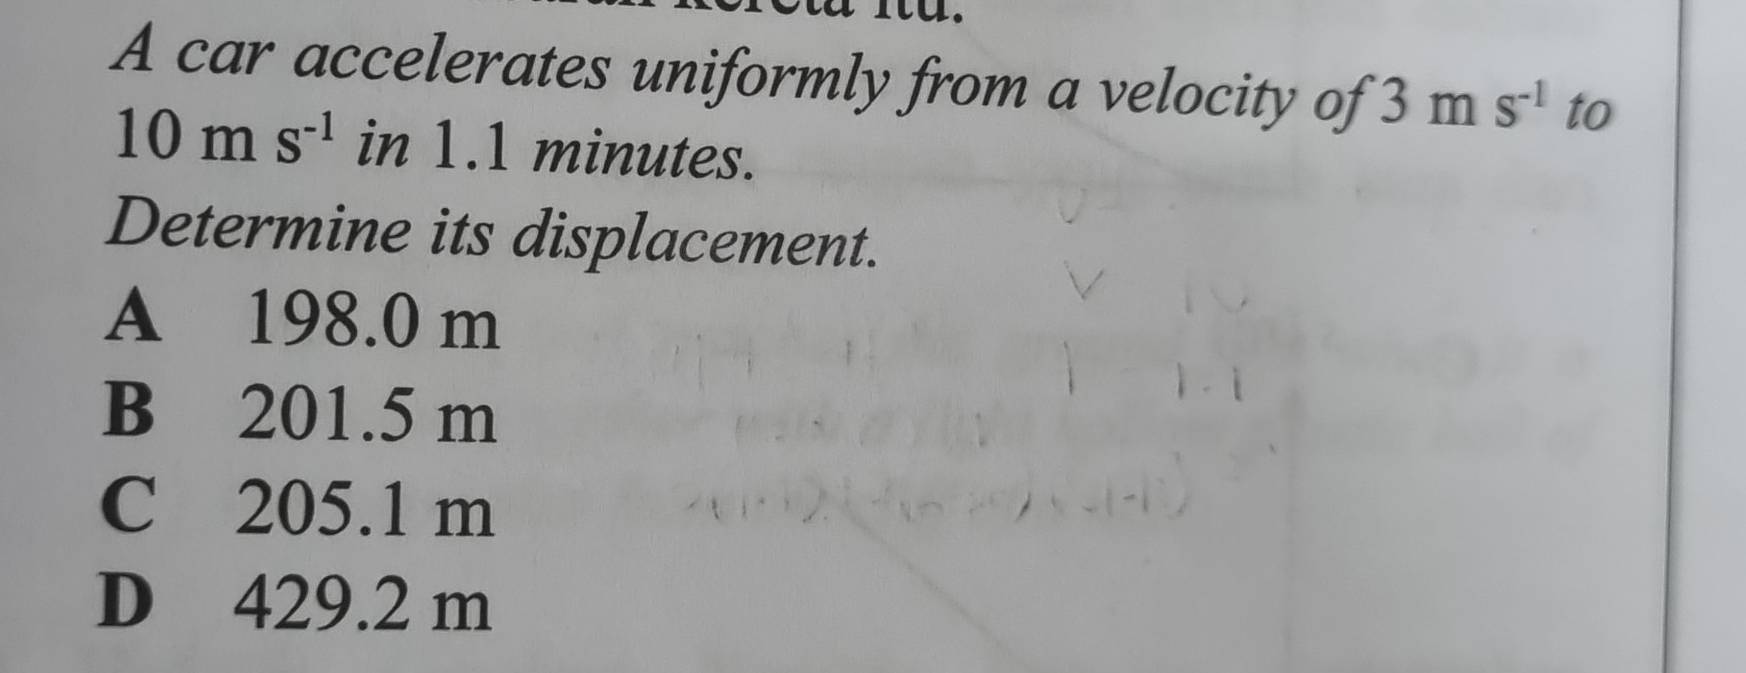 kereta itu.
A car accelerates uniformly from a velocity of 3 m s⁻¹ to
10 m s⁻¹ in 1.1 minutes.
Determine its displacement.
A 198.0 m
B 201.5 m
C 205.1 m
D 429.2 m
1.1